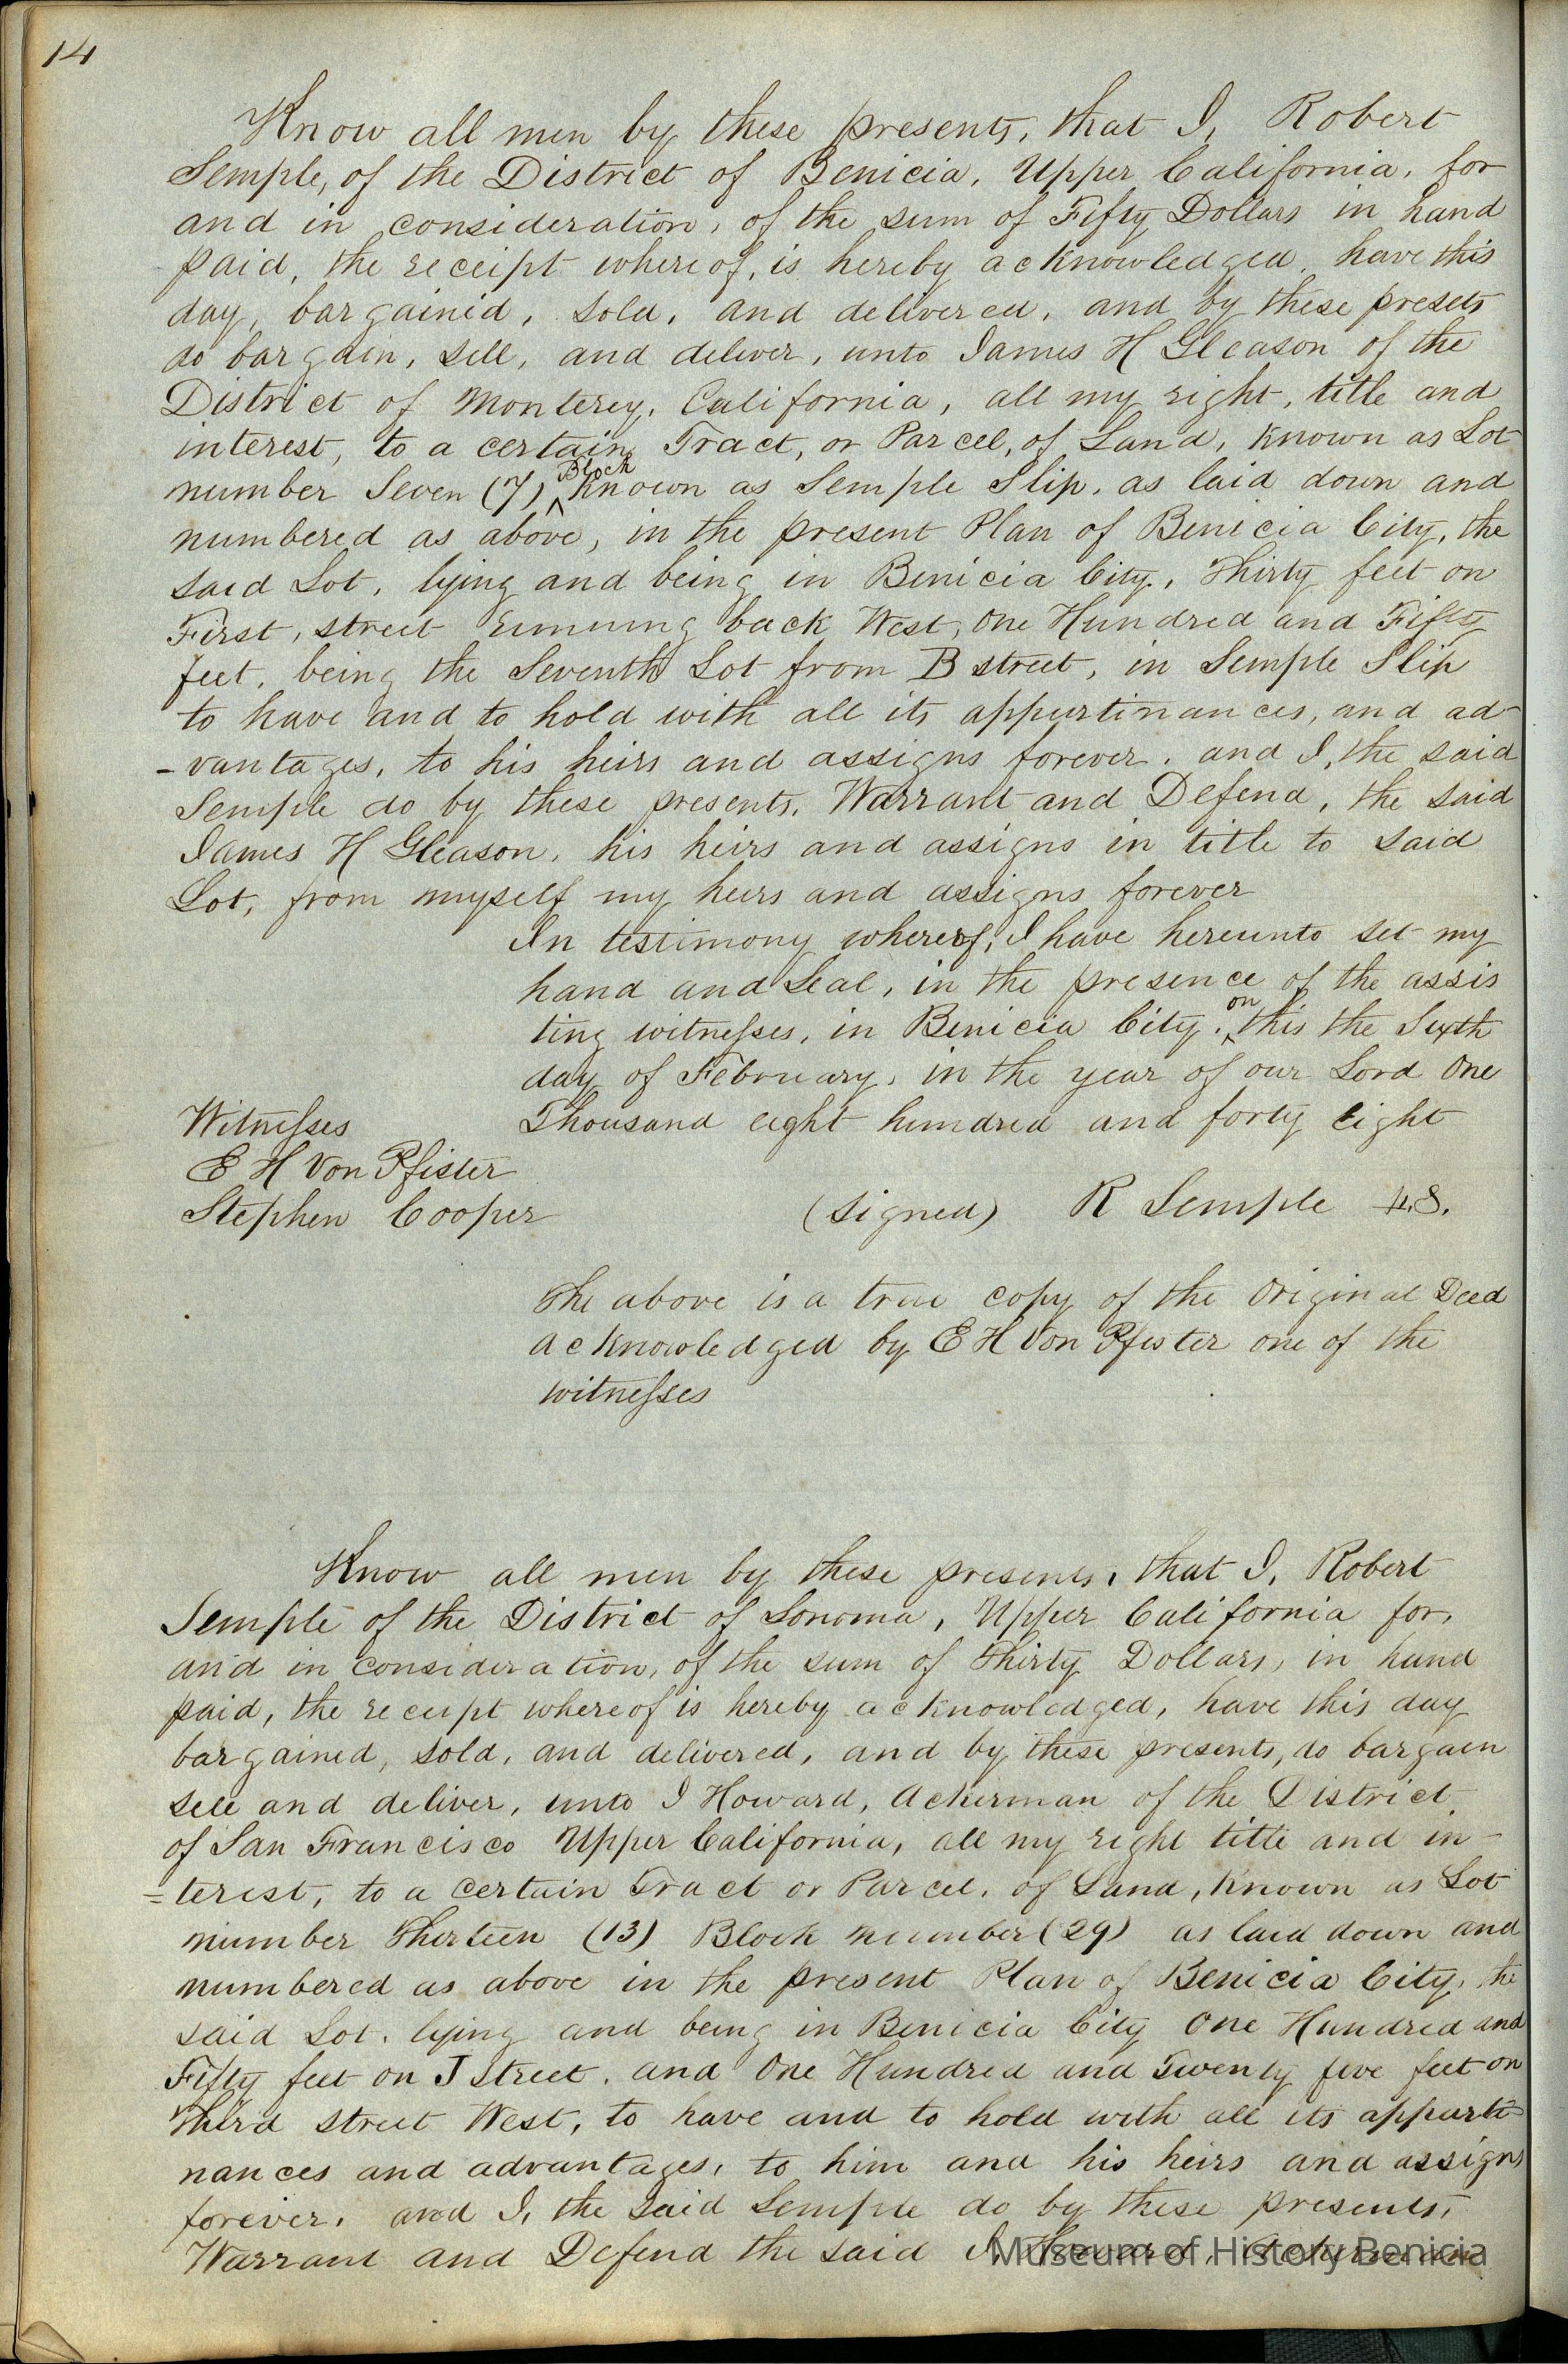 14
Know all men by these presents, that I, Robert
Semple, of the District of Benicia, Upper California, for
and in consideration, of the sum of Fifty Dollars in hand
paid, the receipt whereof, is hereby acknowledged, have this
day, bargainid, sold, and delivered, and by these presets
do bargain, sell, and deliver, unto James H Gleason of the
District of Monterey, California, all my right, title and
interest, to a certain Tract, or Parcel, of Land, known as Lot
number Seven (7) Block known as Semple Slip, as laid down and
numbered as above, in the present Plan of Benicia City, the
said Lot, lying and being in Benicia City, Thirty feet on
First, street running back West, One Hundred and Fifty
feet, being the Seventh Lot from B street, in Semple Slip
to have and to hold with all its appurtinances, and ad-
-vantages, to his heirs and assigns forever, and I, the said
Semple do by these presents, Warrant and Defend, the said
James H Gleason, his heirs and assigns in title to said
Lot, from myself my heirs and assigns forever
In testimony whereof, I have hereunto set my
hand and Seal, in the presence of the assis
ting witnesses, in Benicia City, on this the Sixth
day of February, in the year of our Lord One
Thousand eight hundred and forty eight
Witnesses
E H Von Pfister
Stephen Cooper
(signed) R Semple L.S.
The above is a true copy of the Original Deed
acknowledged by E H Von Pfister one of the
witnesses
Know all men by these presents, that I, Robert
Semple of the District of Sonoma, Upper California for,
and in consideration, of the sum of Thirty Dollars, in hand
paid, the receipt whereof is hereby acknowledged, have this day
bargained, sold, and delivered, and by these presents, do bargain
sell and deliver, unto J Howard, Ackerman of the District
of San Francisco Upper California, all my right title and in-
=terest, to a certain Tract or Parcel, of Land, known as Lot
number Thirteen (13) Block number (29) as laid down and
numbered as above in the present Plan of Benicia City, the
said Lot, lying and being in Benicia City One Hundred and
Fifty feet on J Street, and One Hundred and Twenty five feet on
Third street West, to have and to hold with all its apparti-
nances and advantages, to him and his heirs and assigns
forever, and I, the said Semple do by these presents,
Warrant and Defend the said J, Howard, Ackerman
Museum of History Benicia